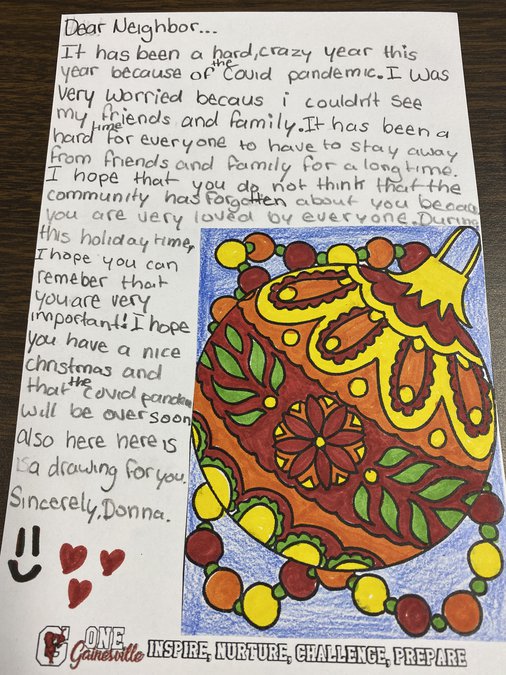 Dear Neighbor...
It has been a hard, crazy year this
year because of the Covid pandemic. I was
very worried becaus i couldn't see
my friends and family. It has been a
hard time for everyone to have to stay away
from friends and family for a long time.
I hope that you do not think that the
community has forgotten about you because
you are very loved by everyone. During
this holiday time,
I hope you can
remeber that
you are very
important! I hope
you have a nice
christmas and
that the covid pandemic
will be over soon
also here here is
is a drawing for you.
Sincerely, Donna.
G ONE
Gainesville INSPIRE, NURTURE, CHALLENGE, PREPARE